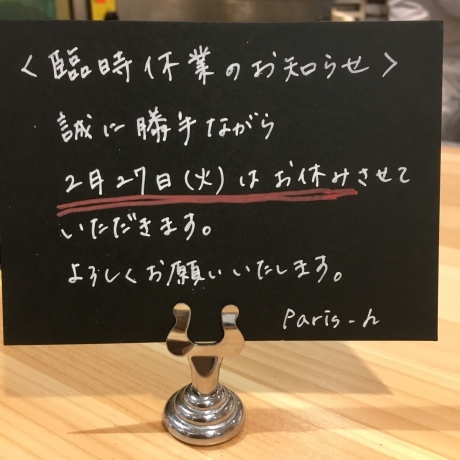 〈臨時休業のお知らせ〉
誠に勝手ながら
2月27日(火)はお休みさせて
いただきます。
よろしくお願いいたします。
Paris-h